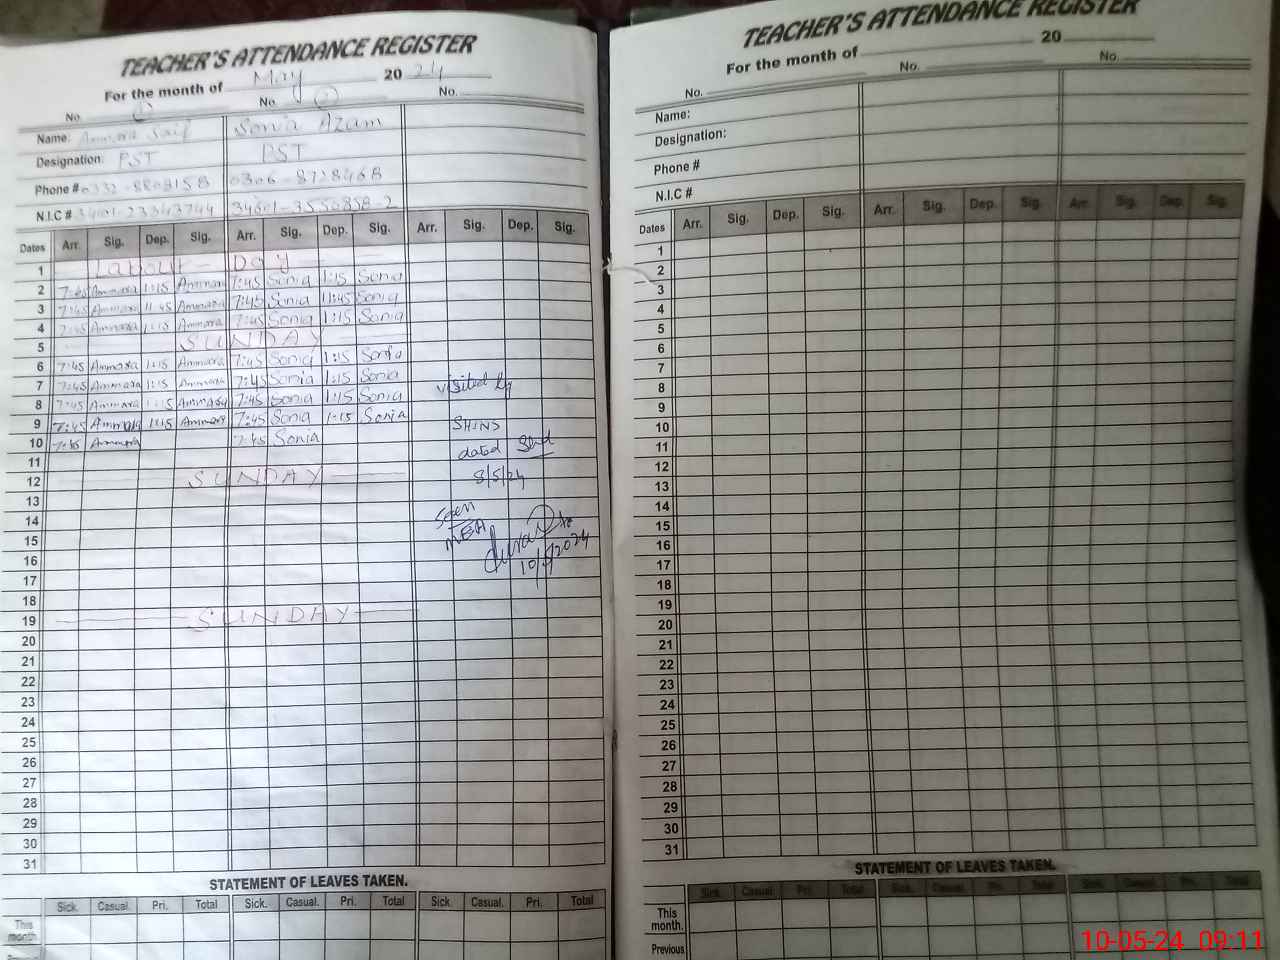 TEACHER'S ATTENDANCE REGISTER
For the month of May 2024
No. 1 No. 2 No.
Name: Ammara Saif Sonia Azam
Designation: PST PST
Phone # 0306-8728468
N.I.C # 34601-3550858-2
Dates Arr. Sig. Dep. Sig. Arr. Sig. Dep. Sig. Arr. Sig. Dep. Sig.
1 Labour Day
2 7:45 Ammara 1:15 Ammara 7:45 Sonia 1:15 Sonia
3 7:45 Ammara 11:45 Ammara 7:45 Sonia 11:45 Sonia
4 7:45 Ammara 1:15 Ammara 7:45 Sonia 1:15 Sonia
5 SUNDAY
6 7:45 Ammara 1:15 Ammara 7:45 Sonia 1:15 Sonia
7 7:45 Ammara 1:15 Ammara 7:45 Sonia 1:15 Sonia
8 7:45 Ammara 1:15 Ammara 7:45 Sonia 1:15 Sonia
visited by
9 7:45 Ammara 1:15 Ammara 7:45 Sonia 1:15 Sonia
10 7:45 Ammara 7:45 Sonia
dated
11
12 SUNDAY
8/5/24
13
14
Seen
15
MEA
16
10/5/2024
17
18
19 SUNDAY
20
21
22
23
24
25
26
27
28
29
30
31
STATEMENT OF LEAVES TAKEN.
Sick. Casual. Pri. Total Sick. Casual. Pri. Total Sick. Casual. Pri. Total
This month.
TEACHER'S ATTENDANCE REGISTER
For the month of 20
No. No. No.
Name:
Designation:
Phone #
N.I.C #
Dates Arr. Sig. Dep. Sig. Arr. Sig. Dep. Sig. Arr. Sig. Dep. Sig.
1
2
3
4
5
6
7
8
9
10
11
12
13
14
15
16
17
18
19
20
21
22
23
24
25
26
27
28
29
30
31
STATEMENT OF LEAVES TAKEN.
Sick. Casual. Pri. Total Sick. Casual. Pri. Total Sick. Casual. Pri. Total
This month.
Previous
10-05-24 09:11